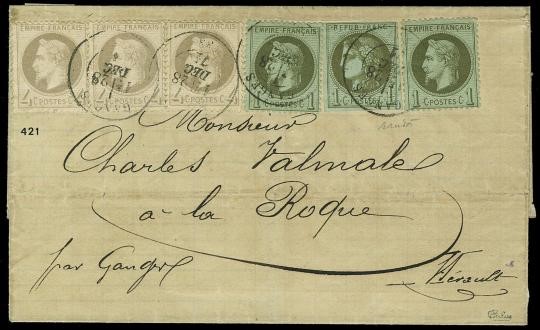 EMPIRE FRANÇAIS EMPIRE FRANÇAIS EMPIRE FRANÇAIS EMPIRE FRANÇAIS REPUB. FRANC. EMPIRE FRANÇAIS
4 C POSTES C 4 4 C POSTES C 4 4 C POSTES C 4 1 C POSTES C 1 1 C POSTES C 1 1 C POSTES C 1
28 DEC 28 DEC 28
421
Monsieur
Charles Valmale
à la Roque
par Ganges
Hérault